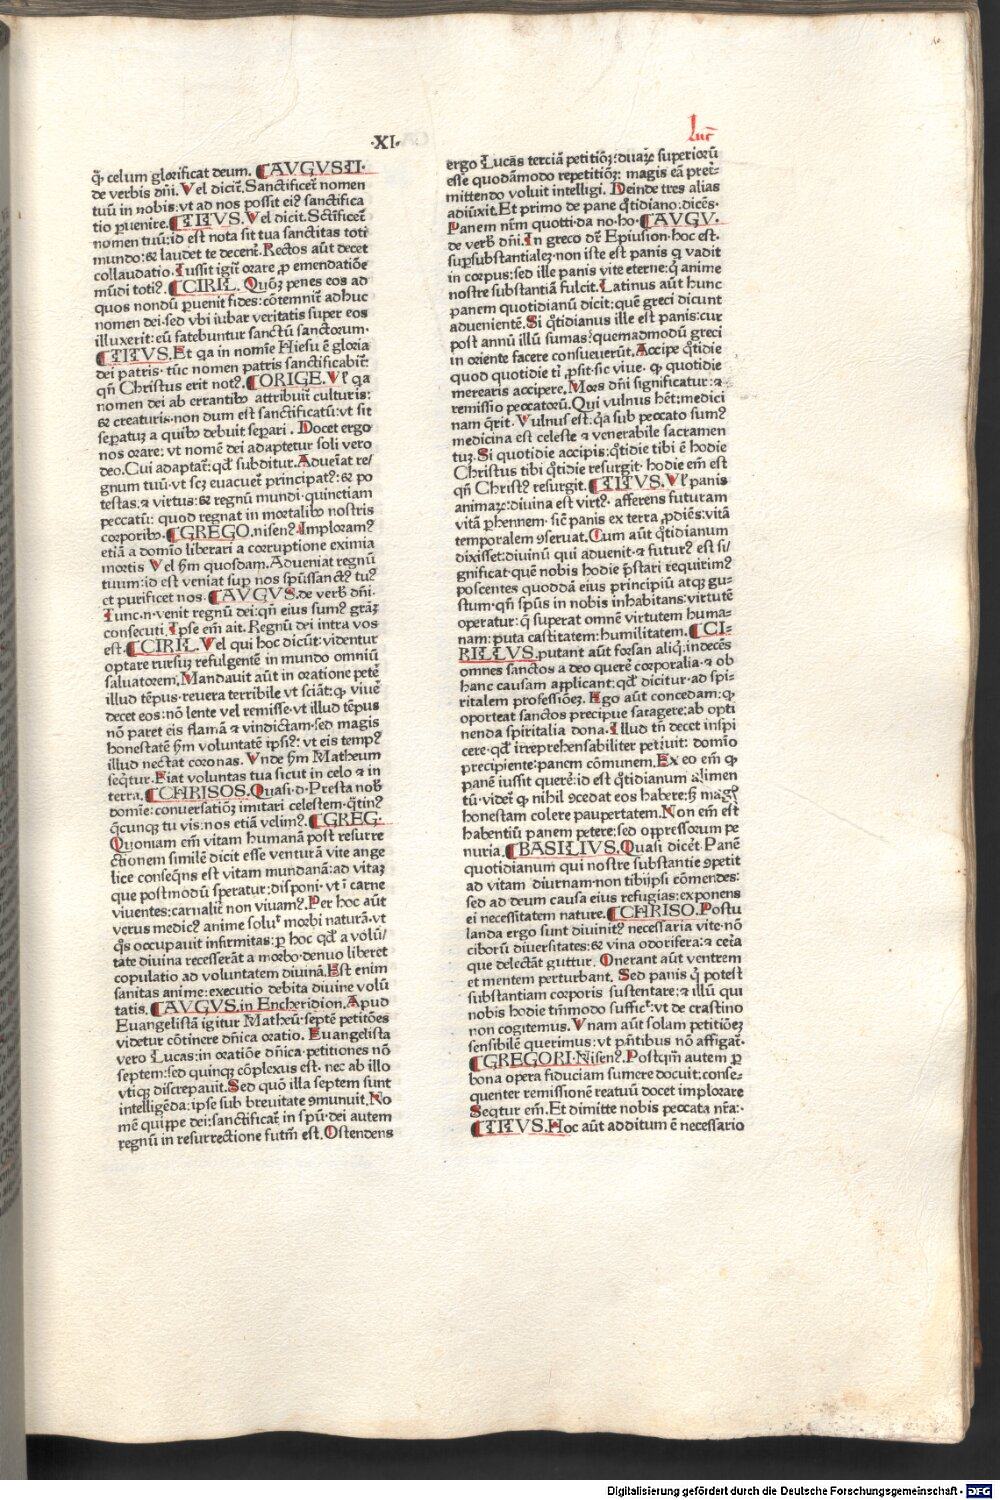 ·XI·
Luc̄
q̄ celum glorificat deum. AVGVSTI·
de verbis dn̄i. Vel dicit̄. Sanctificet̄ nomen
tuū in nobis: vt ad nos possit ei⁹ sanctifica
tio ꝑuenire. TITVS. Vel dicit. Sc̄tificet̄
nomen tuū: id est nota sit tua sanctitas toti
mundo: & laudet te decent̄. Rectos aūt decet
collaudatio. Iussit igit̄ orare ꝓ emendatiōe
mūdi toti⁹. CIRIL. Quō penes eos ad
quos nondū ꝑuenit fides: cōtemnit̄ adhuc
nomen dei. sed vbi iubar veritatis super eos
illuxerit: eū fatebuntur sanctū sanctorum.
TITVS. Et qa in nomīe Hiesu ē gloria
dei patris. tūc nomen patris sanctificabit̄:
qn̄ Christus erit not⁹. ORIGE. Vl̄ qa
nomen dei ab errantibꝰ attribuit̄ culturis:
& creaturis. non dum est sanctificatū: vt sit
seꝑatuꝫ a quibꝰ debuit seꝑari. Docet ergo
nos orare: vt nomē dei adaptetur soli vero
deo. Cui adaptat̄: qd̄ subditur. Adueīat re/
gnum tuū. vt scꝫ euacuet̄ principat⁹: & po
testas. ⁊ virtus: & regnū mundi. quinctiam
peccatū: quod regnat in mortalibꝰ nostris
corporibꝰ. GREGO. nisen⁹. Imploram⁹
etiā a domīo liberari a corruptione eximia
mortis Vel ẜm quosdam. Adueniat regnū
tuum: id est veniat suꝑ nos sp̄ussanct⁹ tu⁹
et purificet nos. AVGVS. de verb̄ dn̄i.
Tunc. n. venit regnū dei: qn̄ eius sum⁹ grāꝫ
consecuti. Ipse em̄ ait. Regnū dei intra vos
est. CIRIL. Vel qui hoc dicūt: videntur
optare rursuꝫ refulgentē in mundo omniū
saluatorem. Mandauit aūt in oratione petē
illud tēpus. reuera terribile vt sciāt: ꝙ viuē
decet eos: nō lente vel remisse. vt illud tēpus
nō paret eis flamā ⁊ vindictam. sed magis
honestatē ẜm voluntatē ipsi⁹: vt eis temp⁹
illud nectat coronas. Vnde ẜm Matheum
seqt̄ur. Fiat voluntas tua sicut in celo ⁊ in
terra. CHRISOS. Quasi. d. Presta nob̄
domīe: conuersatiōꝫ imitari celestem. q̄tin⁹
q̄cunqꝫ tu vis: nos etiā velim⁹. GREG.
Quoniam em̄ vitam humanā post resurre
ctionem similē dicit esse venturā vite ange
lice conseqn̄s est vitam mundanā: ad vitaꝫ
que postmodū speratur: disponi. vt ī carne
viuentes: carnalit̄ non viuam⁹. Per hoc aūt
verus medic⁹ anime soluᵗ morbi naturā. vt
q̄s occupauit infirmitas: ꝑ hoc qd̄ a volū/
tate diuina recesserāt a morbo. denuo liberet
copulatio ad voluntatem diuinā. Est enim
sanitas anime: executio debita diuine volū
tatis. AVGVS. in Encheridion. Apud
Euangelistā igitur Matheū. septē petitōes
videtur cōtinere dn̄ica oratio. Euangelista
vero Lucas: in oratiōe dn̄ica. petitiones nō
septem: sed quinqꝫ cōplexus est. nec ab illo
vtiqꝫ discrepauit. Sed quō illa septem sunt
intelligēda: ipse sub breuitate ꝯmunuit. No
mē quippe dei: sanctificat̄ in spū. dei autem
regnū in resurrectione futm̄ est. Ostendens
ergo Lucas terciā petitiōꝫ: duaꝝ superiorū
esse quodāmodo repetitiōꝫ: magis eā pret̄-
mittendo voluit intelligi. Deinde tres alias
adiūxit. Et primo de pane q̄tidiano: dicēs.
Panem nr̄m quotti. da no. ho. AVGV.
de verb̄ dn̄i. In greco dr̄ Epiusion. hoc est.
suꝑsubstantialeꝫ. non iste est panis q̄ vadit
in corpus: sed ille panis vite eterne: q̄ anime
nostre substantiā fulcit. Latinus aūt hunc
panem quotidianū dicit: quē greci dicunt
aduenientē. Si q̄tidianus ille est panis: cur
post annū illū sumas: quemadmodū greci
in oriente facere consueuerūt. Accipe q̄tidie
quod quotidie ti ꝓsit. sic viue. ꝙ quotidie
merearis accipere. Mors dn̄i significatur: ⁊
remissio peccatorū. Qui vulnus hēt: medici
nam q̄rit. Vulnus est: q̄a sub peccato sum⁹
medicina est celeste ⁊ venerabile sacramen
tuꝫ. Si quotidie accipis: q̄tidie tibi ē hodie
Christus tibi q̄tidie resurgit. hodie em̄ est
qn̄ Christ⁹ resurgit. TITVS. Vl̄ panis
animaꝝ: diuina est virt⁹. afferens futuram
vitā ꝑhennem. sic̄ panis ex terra ꝓdiēs: vitā
temporalem ꝯseruat. Cum aūt q̄tidianum
dixisset: diuinū qui aduenit. ⁊ futur⁹ est si/
gnificat. quē nobis hodie p̄stari requirim⁹
poscentes quoddā eius principiū atqꝫ gu-
stum. qn̄ sp̄us in nobis inhabitans: virtutē
operatur: q̄ superat omnē virtutem huma-
nam: puta castitatem: humilitatem. CI-
RILLVS. putant aūt forsan aliq̄: indecēs
omnes sanctos a deo querē corporalia. ⁊ ob
hanc causam applicant: qd̄ dicitur. ad spi-
ritalem professiōeꝫ. Ego aūt concedam: ꝙ
oporteat sanctos precipue satagere: ab opti
nenda spiritalia dona. Illud tn̄ decet inspi
cere. qd̄ irreprehensabiliter petijuit: domīo
precipiente: panem cōmunem. Ex eo em̄ ꝙ
panē iussit querē: id est q̄tidianum alimen
tū. videt̄ ꝙ nihil ꝯcedat eos habere: ẜ mag̃
honestam colere paupertatem. Non em̄ est
habentiū panem petere: sed oppressorum pe
nuria. BASILIVS. Quasi dicet̄. Panē
quotidianum qui nostre substantie ꝯpetit
ad vitam diurnam. non tibijpsi cōmendes:
sed ad deum causa eius refugias: exponens
ei necessitatem nature. CHRISO. Postu
landa ergo sunt diuinit⁹ necessaria vite. nō
ciborū diuersitates: & vina odorifera: ⁊ cet̄a
que delectāt guttur. Onerant aūt ventrem
et mentem perturbant. Sed panis q̄ potest
substantiam corporis sustentare: ⁊ illū qui
nobis hodie tm̄modo sufficᵗ: vt de crastino
non cogitemus. Vnam aūt solam petitiōeꝫ
sensibilē querimus: vt pn̄tibus nō affigat̄.
GREGORI. Nisen⁹. Postqm̄ autem ꝑ
bona opera fiduciam sumere docuit: conse-
quenter remissionē reatuū docet implorare
Seqt̄ur em̄. Et dimitte nobis peccata nr̄a:.
TITVS. Hoc aūt additum ē necessario
Digitalisierung gefördert durch die Deutsche Forschungsgemeinschaft - DFG